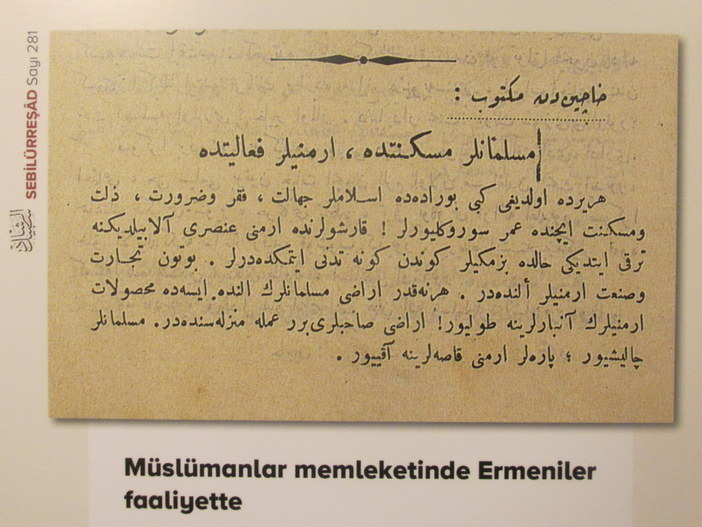 SEBİLÜRREŞÂD Sayı 281
خاچين‌دن مكتوب :
مسلمانلر مسكنتده ، ارمنيلر فعاليتده
هريرده اولديغى كبى بوراده‌ده اسلاملر جهالت ، فقر وضرورت ، ذلت
ومسكنت ايچنده عمر سوروكليورلر ! قارشولرنده ارمنى عنصرى آلابيلديكنه
ترقى ايتديكى حالده بزمكيلر كوندن كونه تدنى ايتمكده‌درلر . بوتون تجارت
وصنعت ارمنيلر ألنده‌در . هرنه‌قدر اراضى مسلمانلرك النده ايسه‌ده محصولات
ارمنيلرك آنبارلرينه طوليور! اراضى صاحبلرى برر عمله منزله‌سنده‌در. مسلمانلر
چاليشيور ؛ پاره‌لر ارمنى قاصه‌لرينه آقييور .
Müslümanlar memleketinde Ermeniler
faaliyette